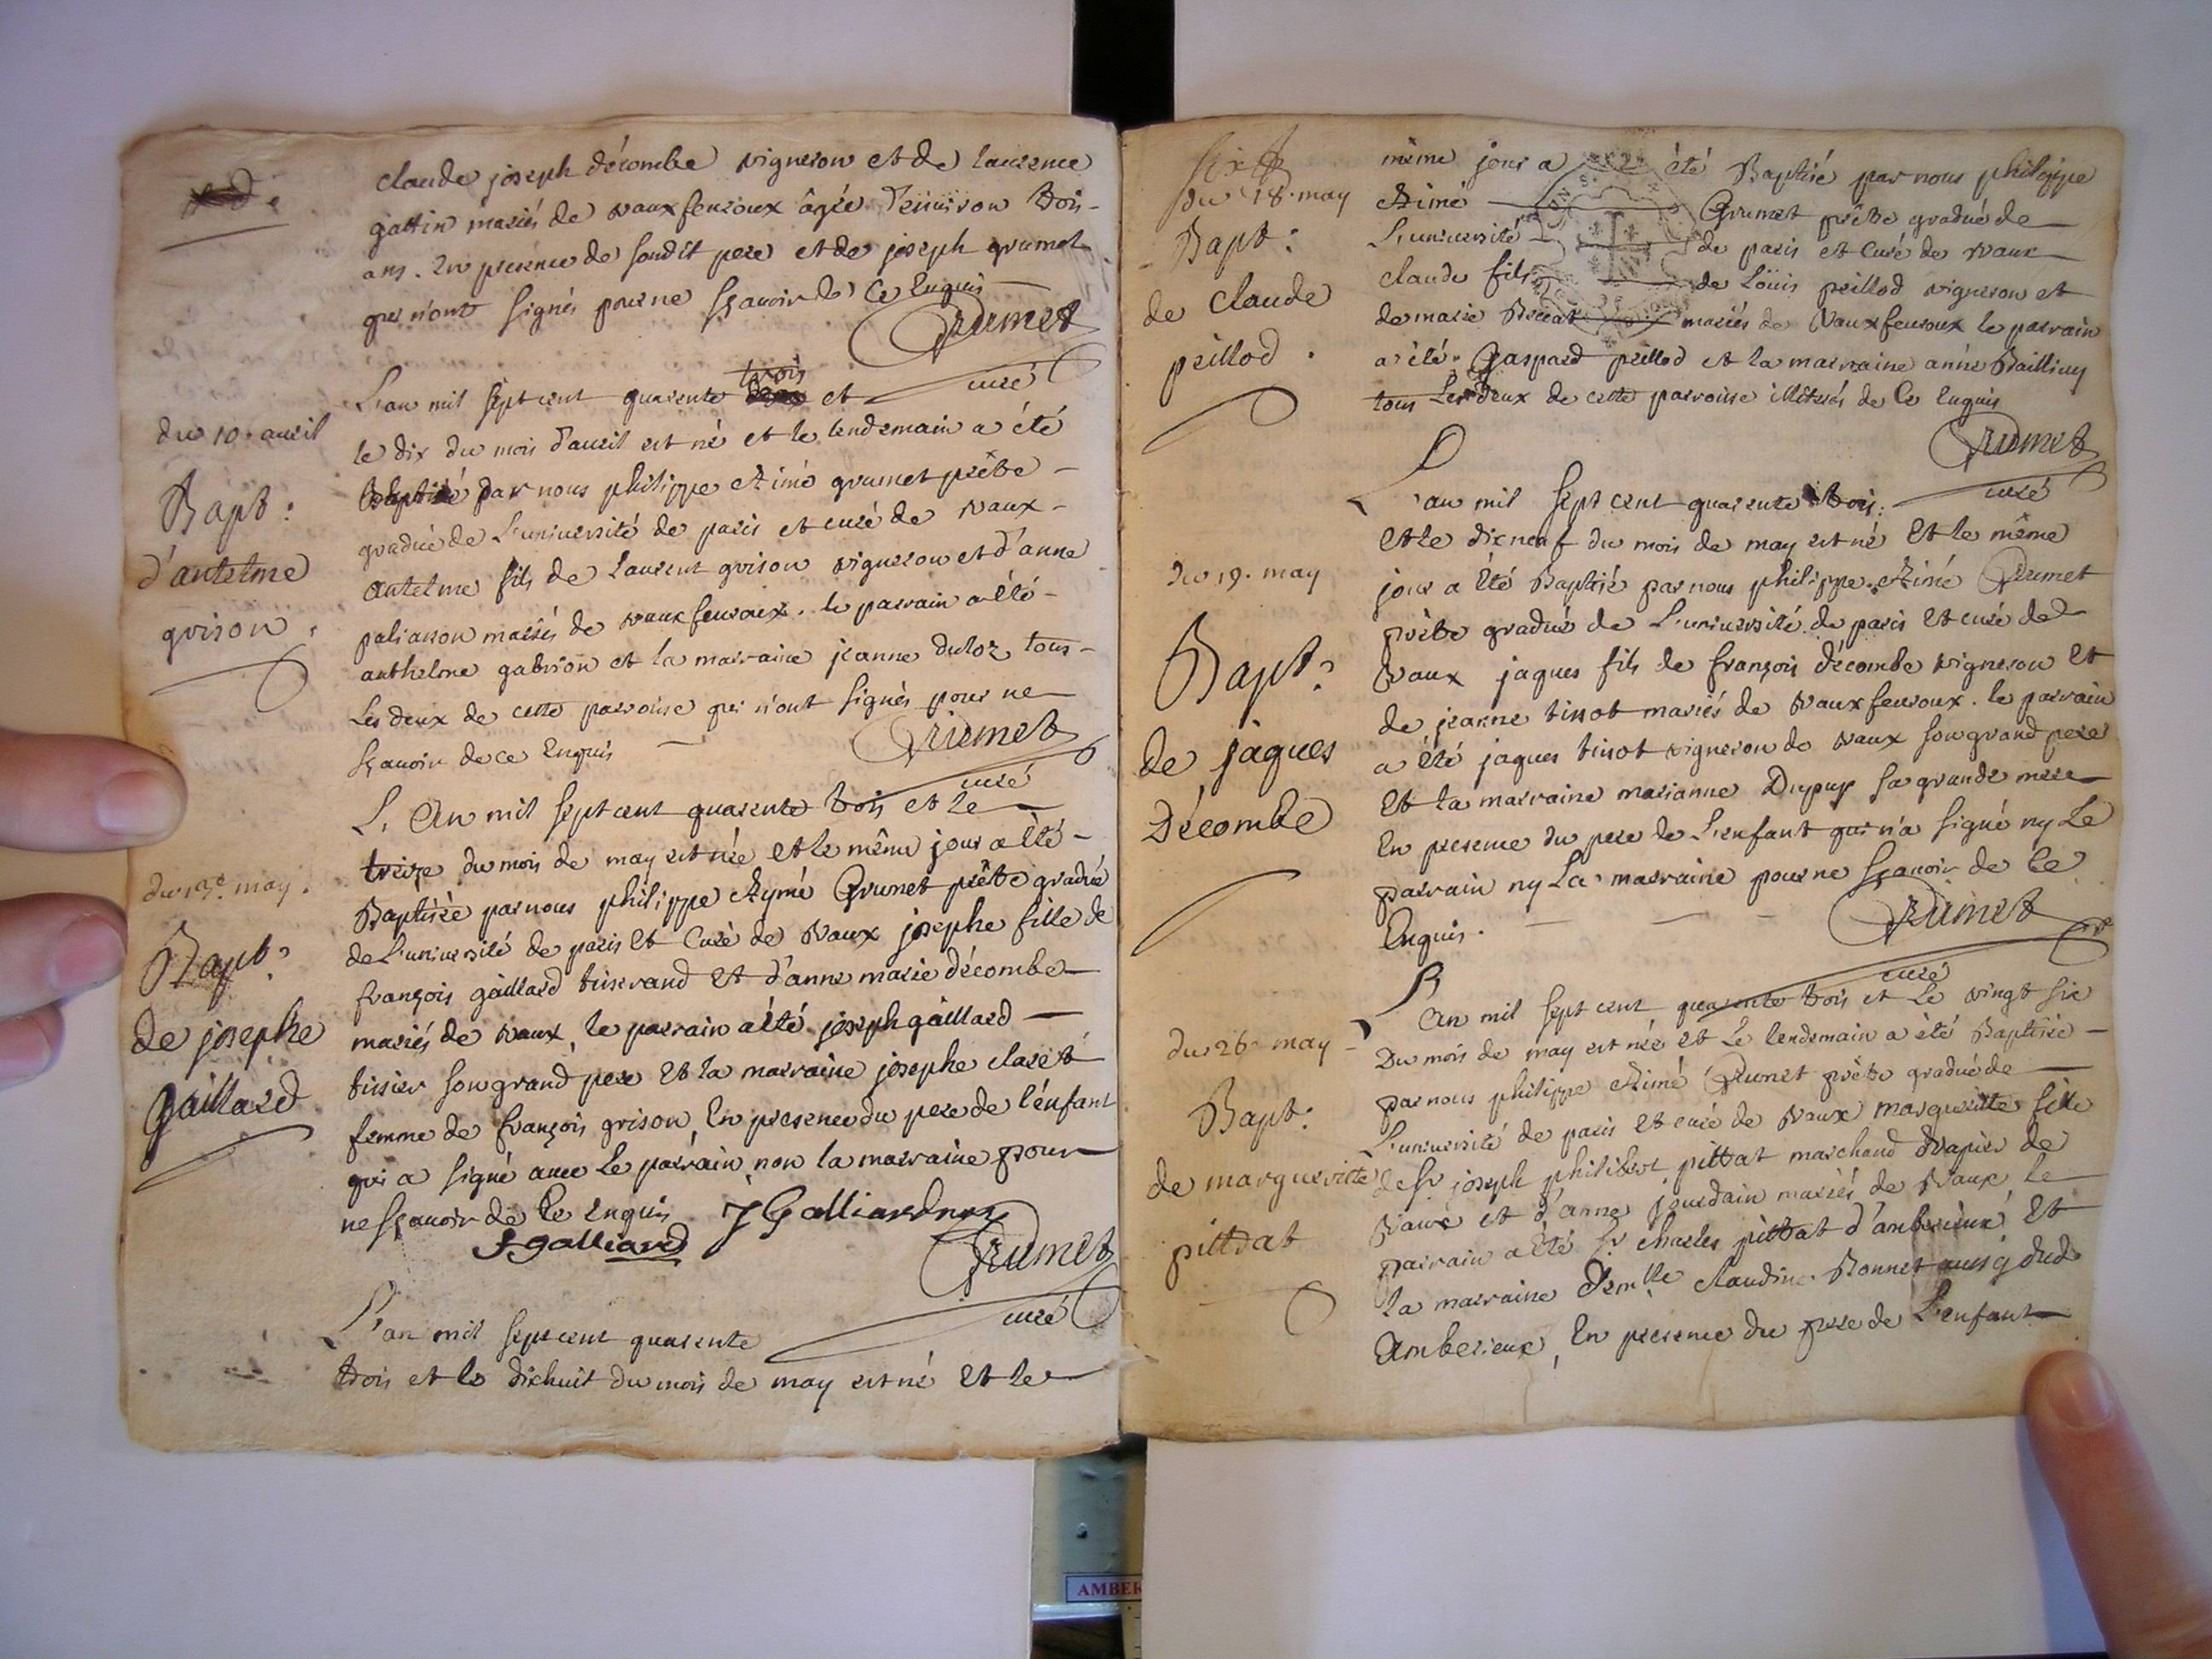 claude joseph décombe vigneron et de laurence
gattin mariés de vaux feuroux âgée d'environ trois
ans. En presence de sondit pere et de joseph grumet
qui n'ont signés pour ne sçavoir de ce Enquis
Grumet
curé
du 10. avril
Bapt:
d'antelme
grison
L'an mil sept cent quarente trois et
le dix du mois d'avril est né et le lendemain a été
Baptisé par nous philippe Aimé grumet prêtre
gradué de L'université de paris et curé de vaux
antelme fils de Laurent grison vigneron et d'anne
paliasson mariés de vaux feuroux. le parrain a été
anthelme gabrion et la marraine jeanne duloz tous
Les deux de cette parroisse qui n'ont signés pour ne
sçavoir de ce Enquis
Grumet
curé
du 13e may.
Bapt:
de josephe
gaillard
L'An mil sept cent quarente trois et Le
treize du mois de may est née et le même jour a Eté
Baptisée par nous philippe Aymé Grumet prêtre gradué
de L'université de paris et Curé de Vaux josephe fille de
françois gaillard tisserand et d'anne marie décombe
mariés de vaux, le parrain a été joseph gaillard
tissier son grand pere et la marraine josephe claret
femme de françois grison, En presence du pere de l'enfant
qui a signé avec Le parrain, non la marraine pour
ne sçavoir de Ce enquis J Galliard
f galliard
Grumet
curé
L'an mil sept cent quarente
trois et le dixhuit du mois de may est né et le
du 18. may
Bapt:
de claude
peillod
même jour a été Baptisé par nous philippe
Aimé Grumet prêtre gradué de
L'université de paris et Curé de vaux
claude fils de Loüis peillod vigneron et
de marie mariés de Vaux feuroux le parrain
a été Gaspard peillod et la marraine anne
tous Les deux de cette parroisse illiterés de Ce Enquis
Grumet
curé
du 19. may
Bapt:
de jaques
Décombe
L'an mil sept cent quarente trois.
et le dixneuf du mois de may est né Et le même
jour a Eté Baptisé par nous philippe Aimé Grumet
prêtre gradué de L'université de paris et curé de
Vaux jaques fils de françois décombe vigneron Et
de jeanne tissot mariés de vaux feuroux. le parrain
a Eté jaques tissot vigneron de vaux son grand pere
Et la marraine marianne Dupuy sa grande mere
En presence du pere de L'enfant qui n'a signé ny Le
parrain ny La marraine pour ne sçavoir de Ce
Enquis.
Grumet
curé
du 26 may
Bapt:
de margueritte
pittrat
L'An mil sept cent quarente trois et Le vingt six
Du mois de may est née et Le lendemain a été Baptisée
par nous philippe Aimé Grumet prêtre gradué de
L'université de paris et curé de Vaux margueritte fille
de Sr joseph philibert pittrat marchand drapier de
Vaux et d'anne jourdain mariés de Vaux le
parrain a Eté Sr charles pittrat d'amberieux Et
la marraine Demlle claudine Bonnet aussy dud
Amberieux, En presence du pere de L'enfant
AMBER